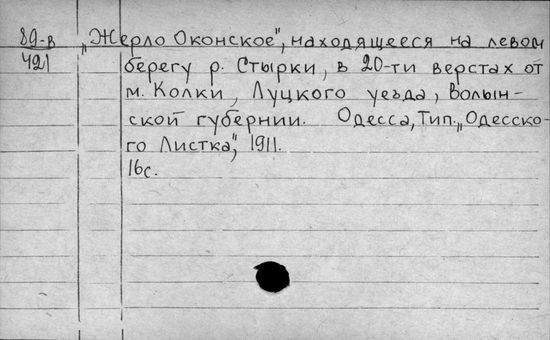 89-в „Жерло Оконское", находящееся на левом
421 берегу р. Стырки, в 20-ти верстах от
м. Колки, Луцкого уезда, Волын-
ской губернии. Одесса, Тип. „Одесско-
го Листка", 1911.
16с.